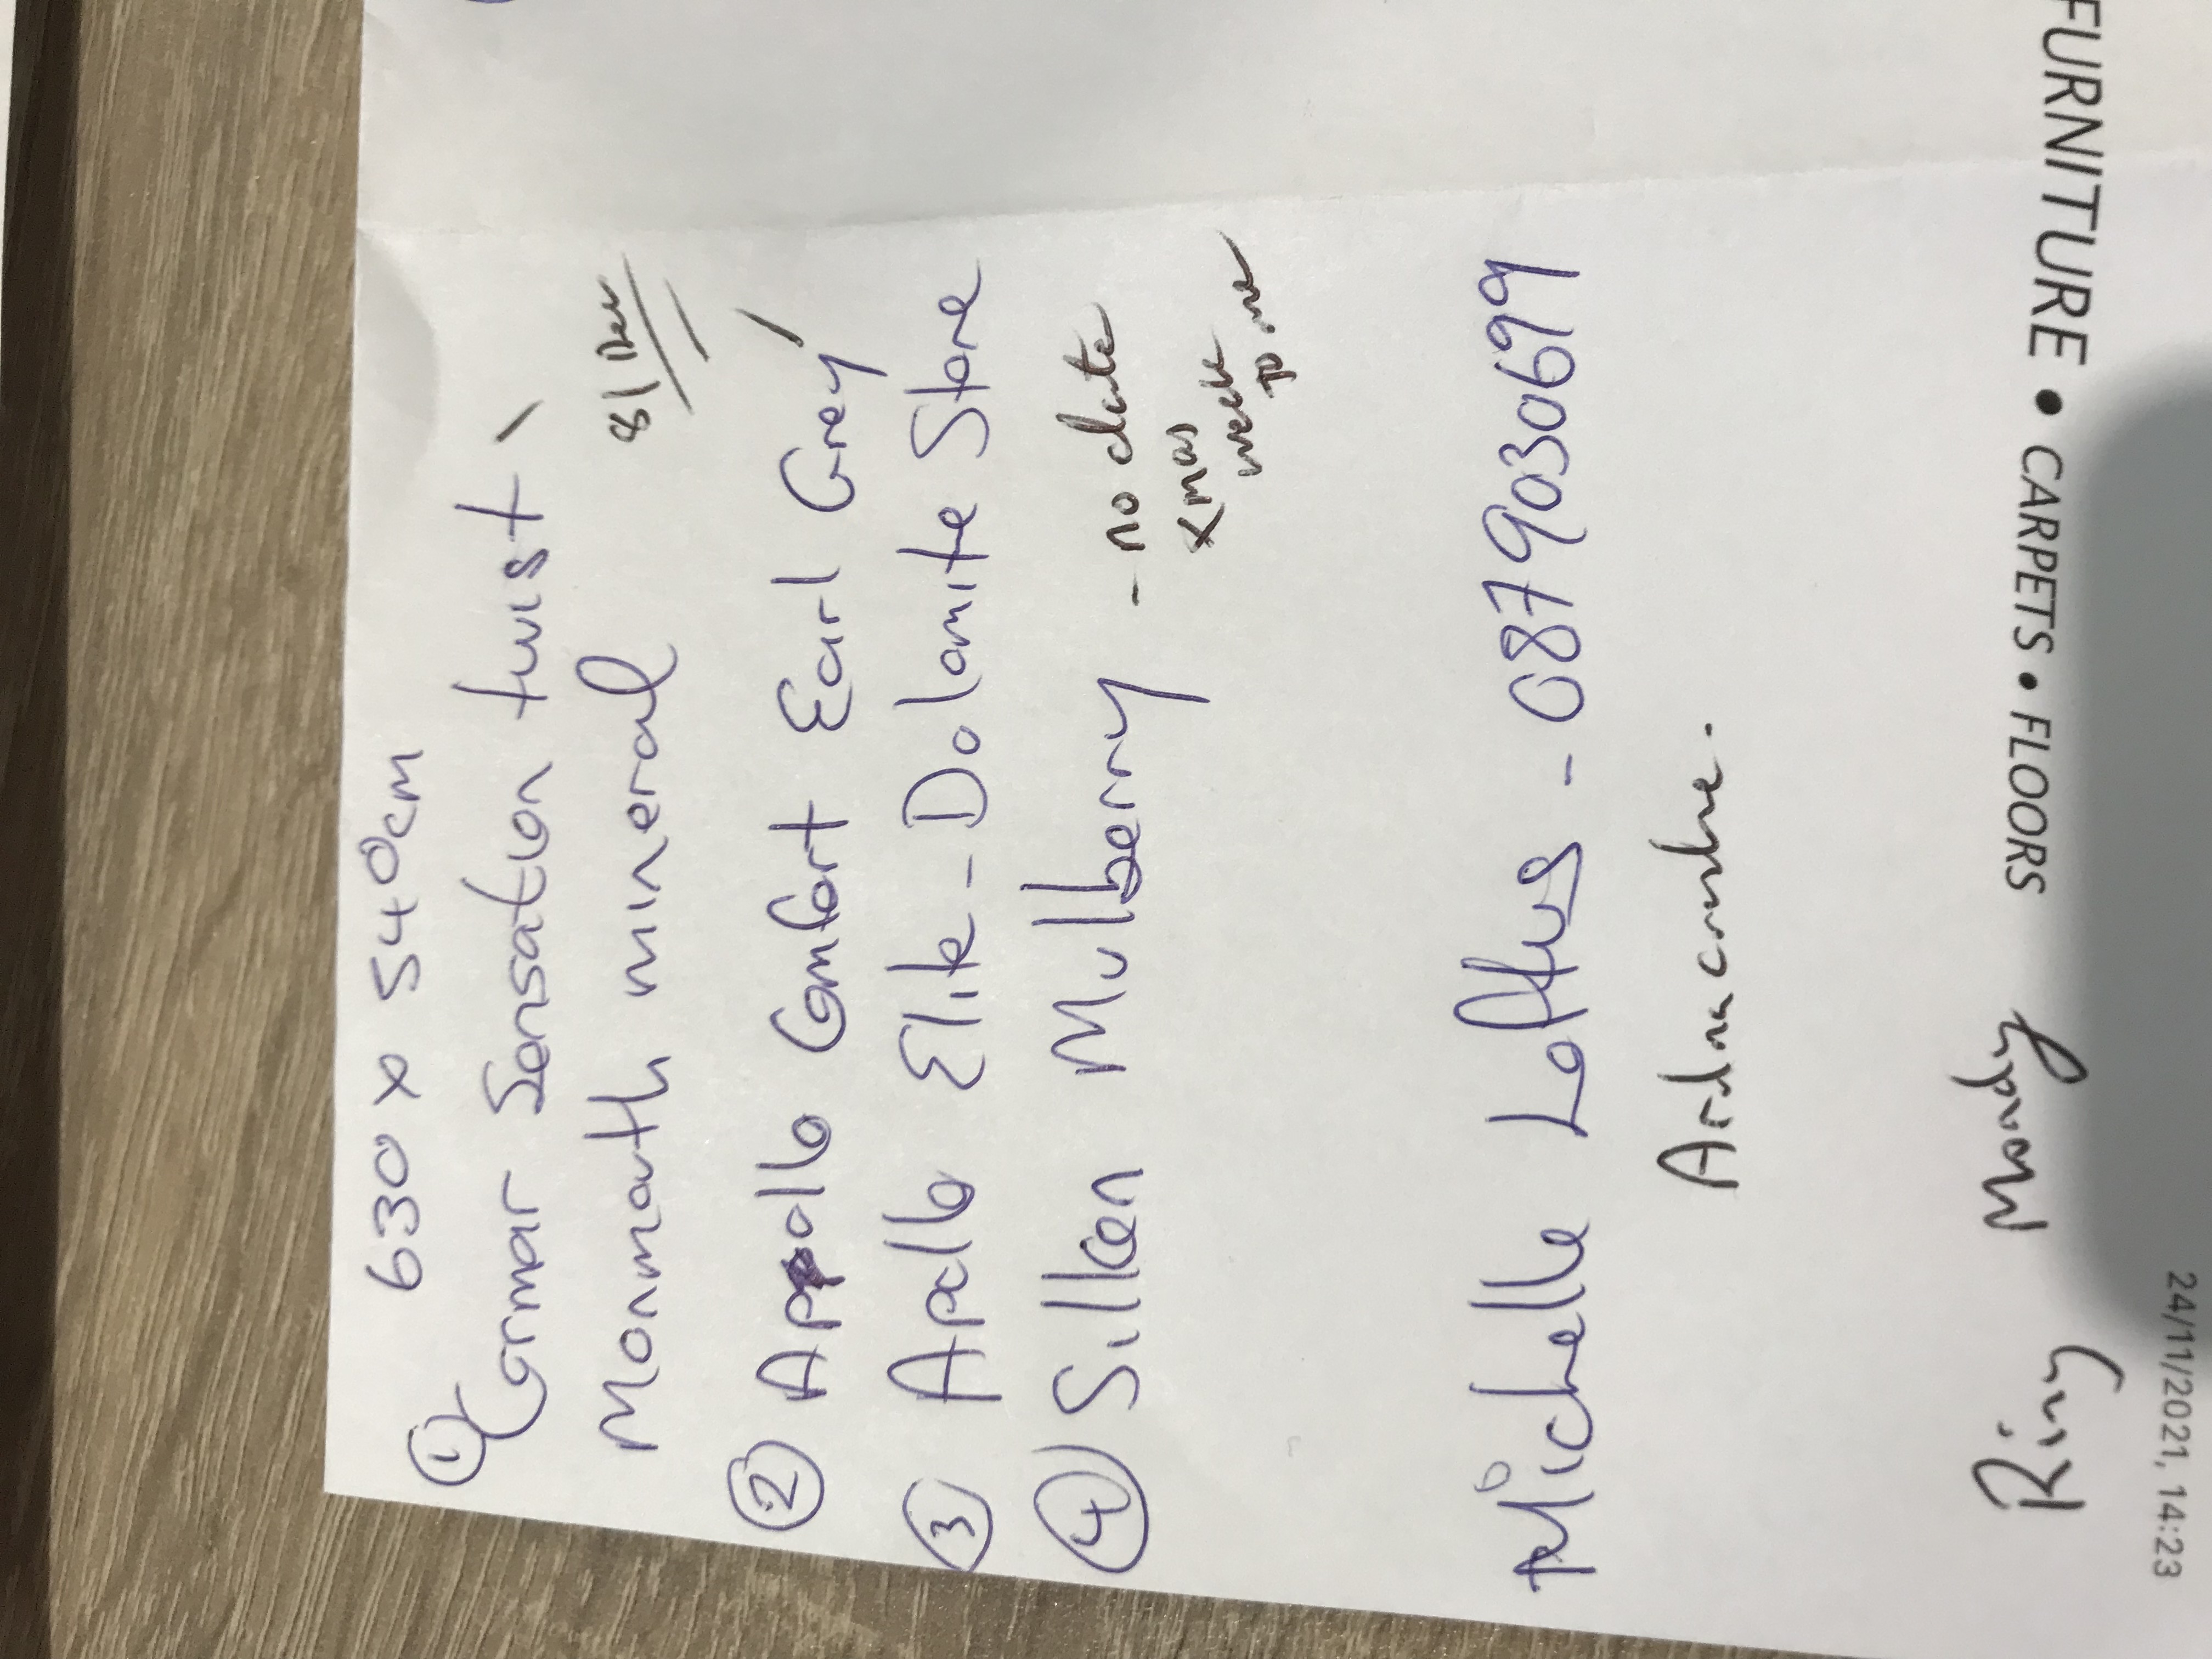 630 x 540cm
① Cormar Sensation twist
Monmouth mineral
8/Dec
② Apollo Comfort Earl Grey
③ Apollo Elite - Dolomite Stone
④ Silken Mulberry - no date
xmas
week
Michelle Loftus - 0879030699
FURNITURE • CARPETS • FLOORS
Ring Monday
24/11/2021, 14:23